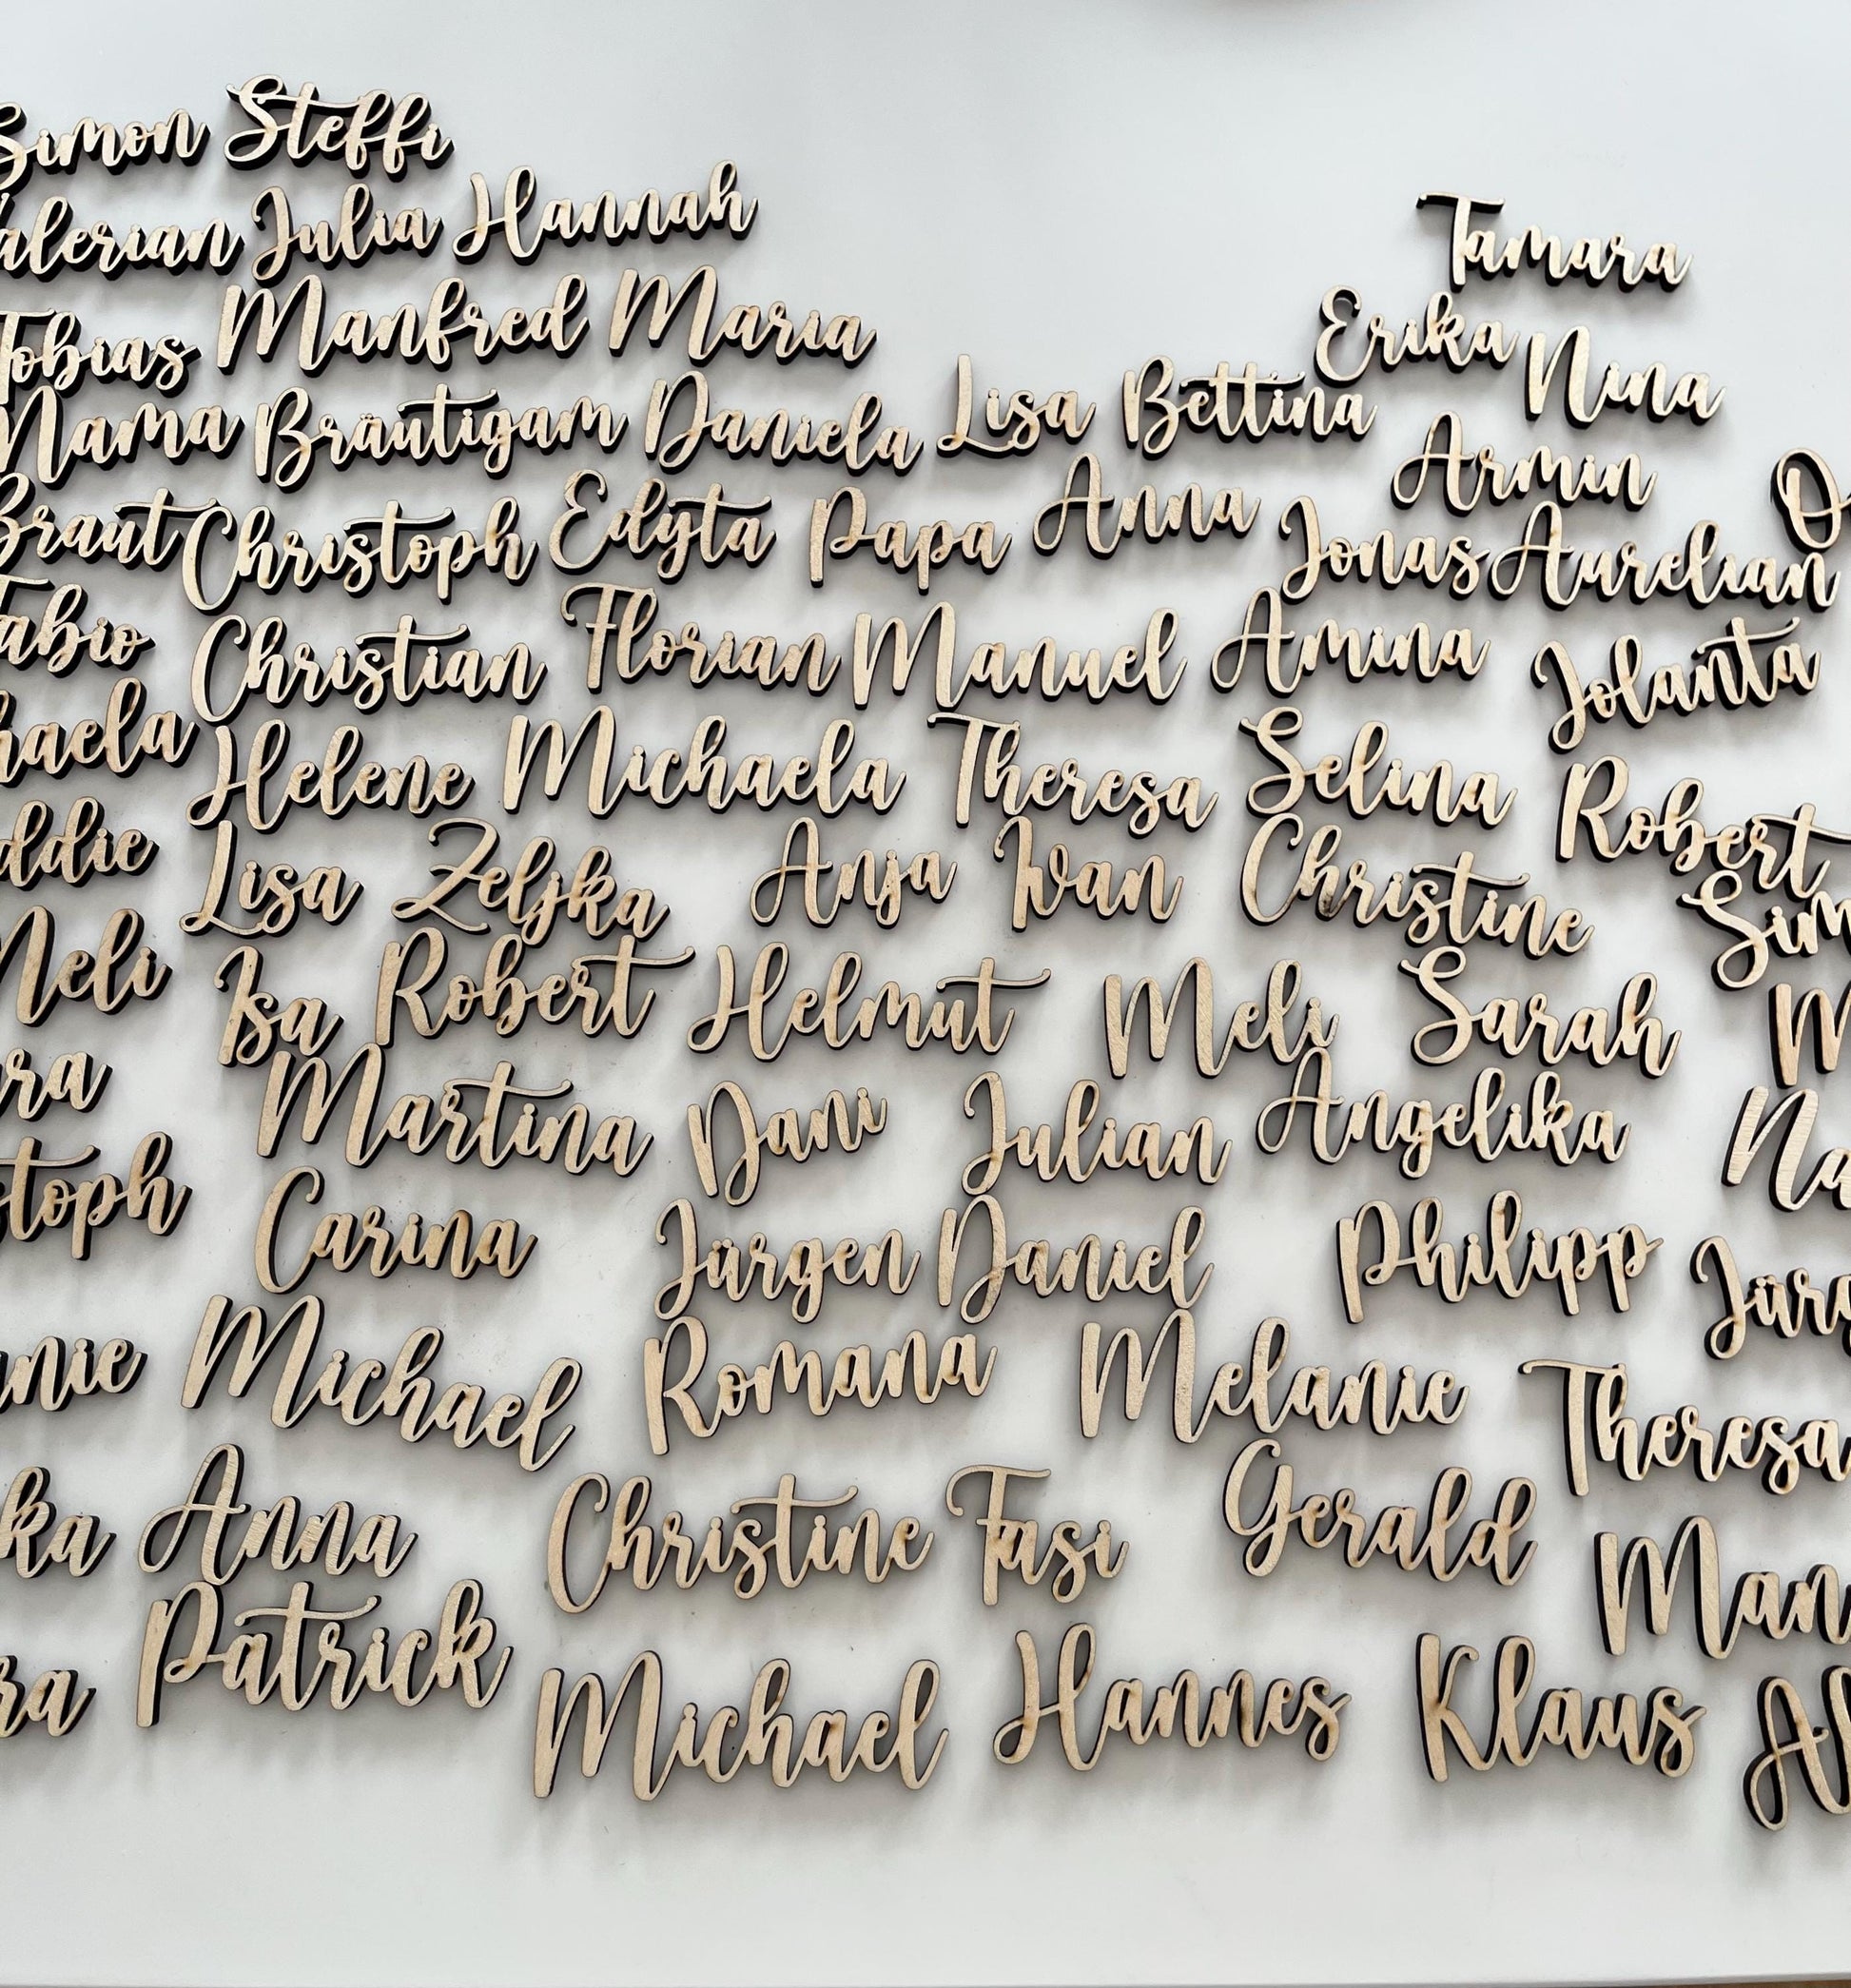 Simon Steffi
alerian Julia Hannah
Tamara
Tobias Manfred Maria
Erika Nina
Mama Bräutigam Daniela Lisa Bettina
Armin
Braut Christoph Edyta Papa Anna
Jonas Aurelian
abio Christian Florian Manuel Amina Jolanta
haela Helene Michaela Theresa Selina Robert
ddie Lisa Zeljka Anja Ivan Christine Sim
Meli Isa Robert Helmut Meli Sarah M
ra Martina Dani Julian Angelika Na
toph Carina Jürgen Daniel Philipp Jürg
nie Michael Romana Melanie Theresa
ka Anna Christine Fasi Gerald Man
ra Patrick Michael Hannes Klaus Al